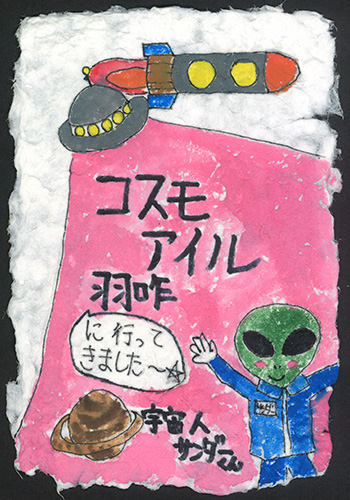 コスモ
アイル
羽咋
に行って
きました〜☆
宇宙人
サンダーくん